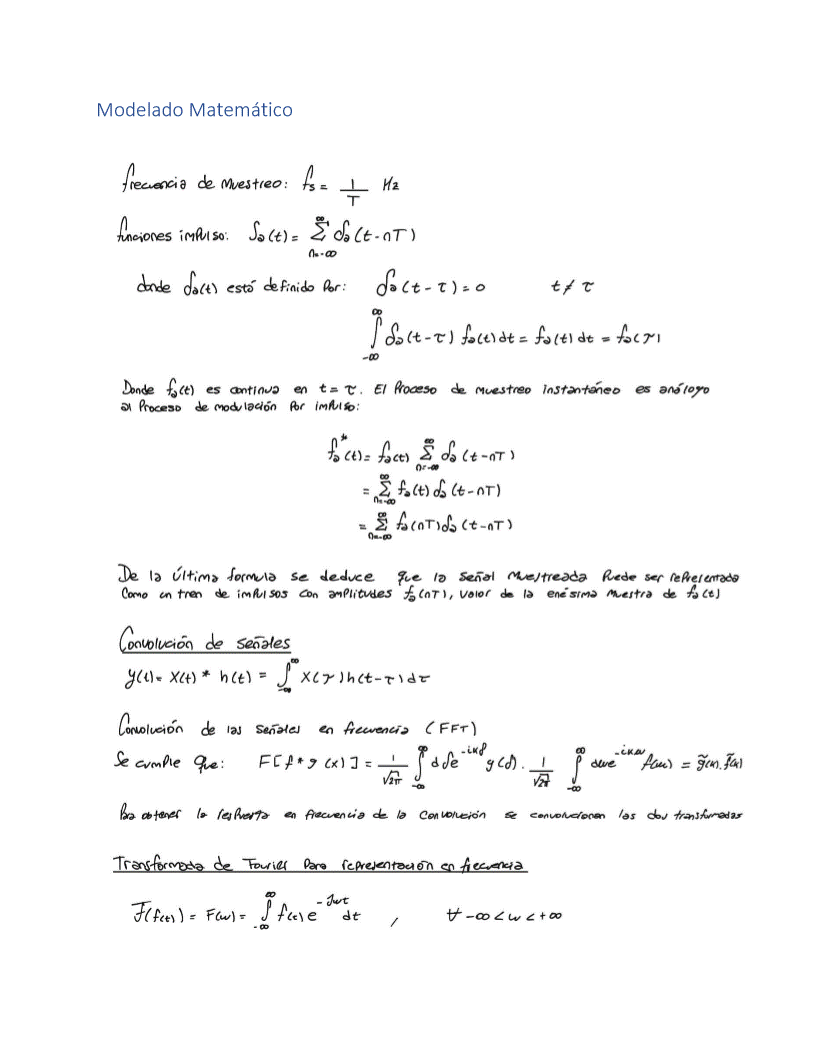 Modelado Matemático
frecuencia de muestreo: fs = 1/T Hz
funciones impulso: Sa(t) = ∑_{n=-∞}^{∞} δa(t-nT)
donde δa(t) está definido por: δa(t-τ) = 0 t ≠ τ
∫_{-∞}^{∞} δa(t-τ) fa(t) dt = fa(t) dt = fa(τ)
Donde fa(t) es continua en t = τ. El proceso de muestreo instantáneo es análogo
al proceso de modulación por impulso:
fa*(t) = fa(t) ∑_{n=-∞}^{∞} δa(t-nT)
= ∑_{n=-∞}^{∞} fa(t) δa(t-nT)
= ∑_{n=-∞}^{∞} fa(nT) δa(t-nT)
De la última formula se deduce que la señal muestreada puede ser representada
como un tren de impulsos con amplitudes fa(nT), valor de la enésima muestra de fa(t)
Convolución de señales
y(t) = x(t) * h(t) = ∫_{-∞}^{∞} x(τ) h(t-τ) dτ
Convolución de las señales en frecuencia (FFT)
Se cumple que: F[f*g(x)] = 1/√2π ∫_{-∞}^{∞} dδe^{-ikδ} g(δ) . 1/√2π ∫_{-∞}^{∞} dωe^{-ikω} f(ω) = g̃(k).f̃(k)
Para obtener la respuesta en frecuencia de la convolución se convolucionan las dos transformadas
Transformada de Fourier para representación en frecuencia
F(f(t)) = F(w) = ∫_{-∞}^{∞} f(t) e^{-Jwt} dt , ∀ -∞ < w < +∞